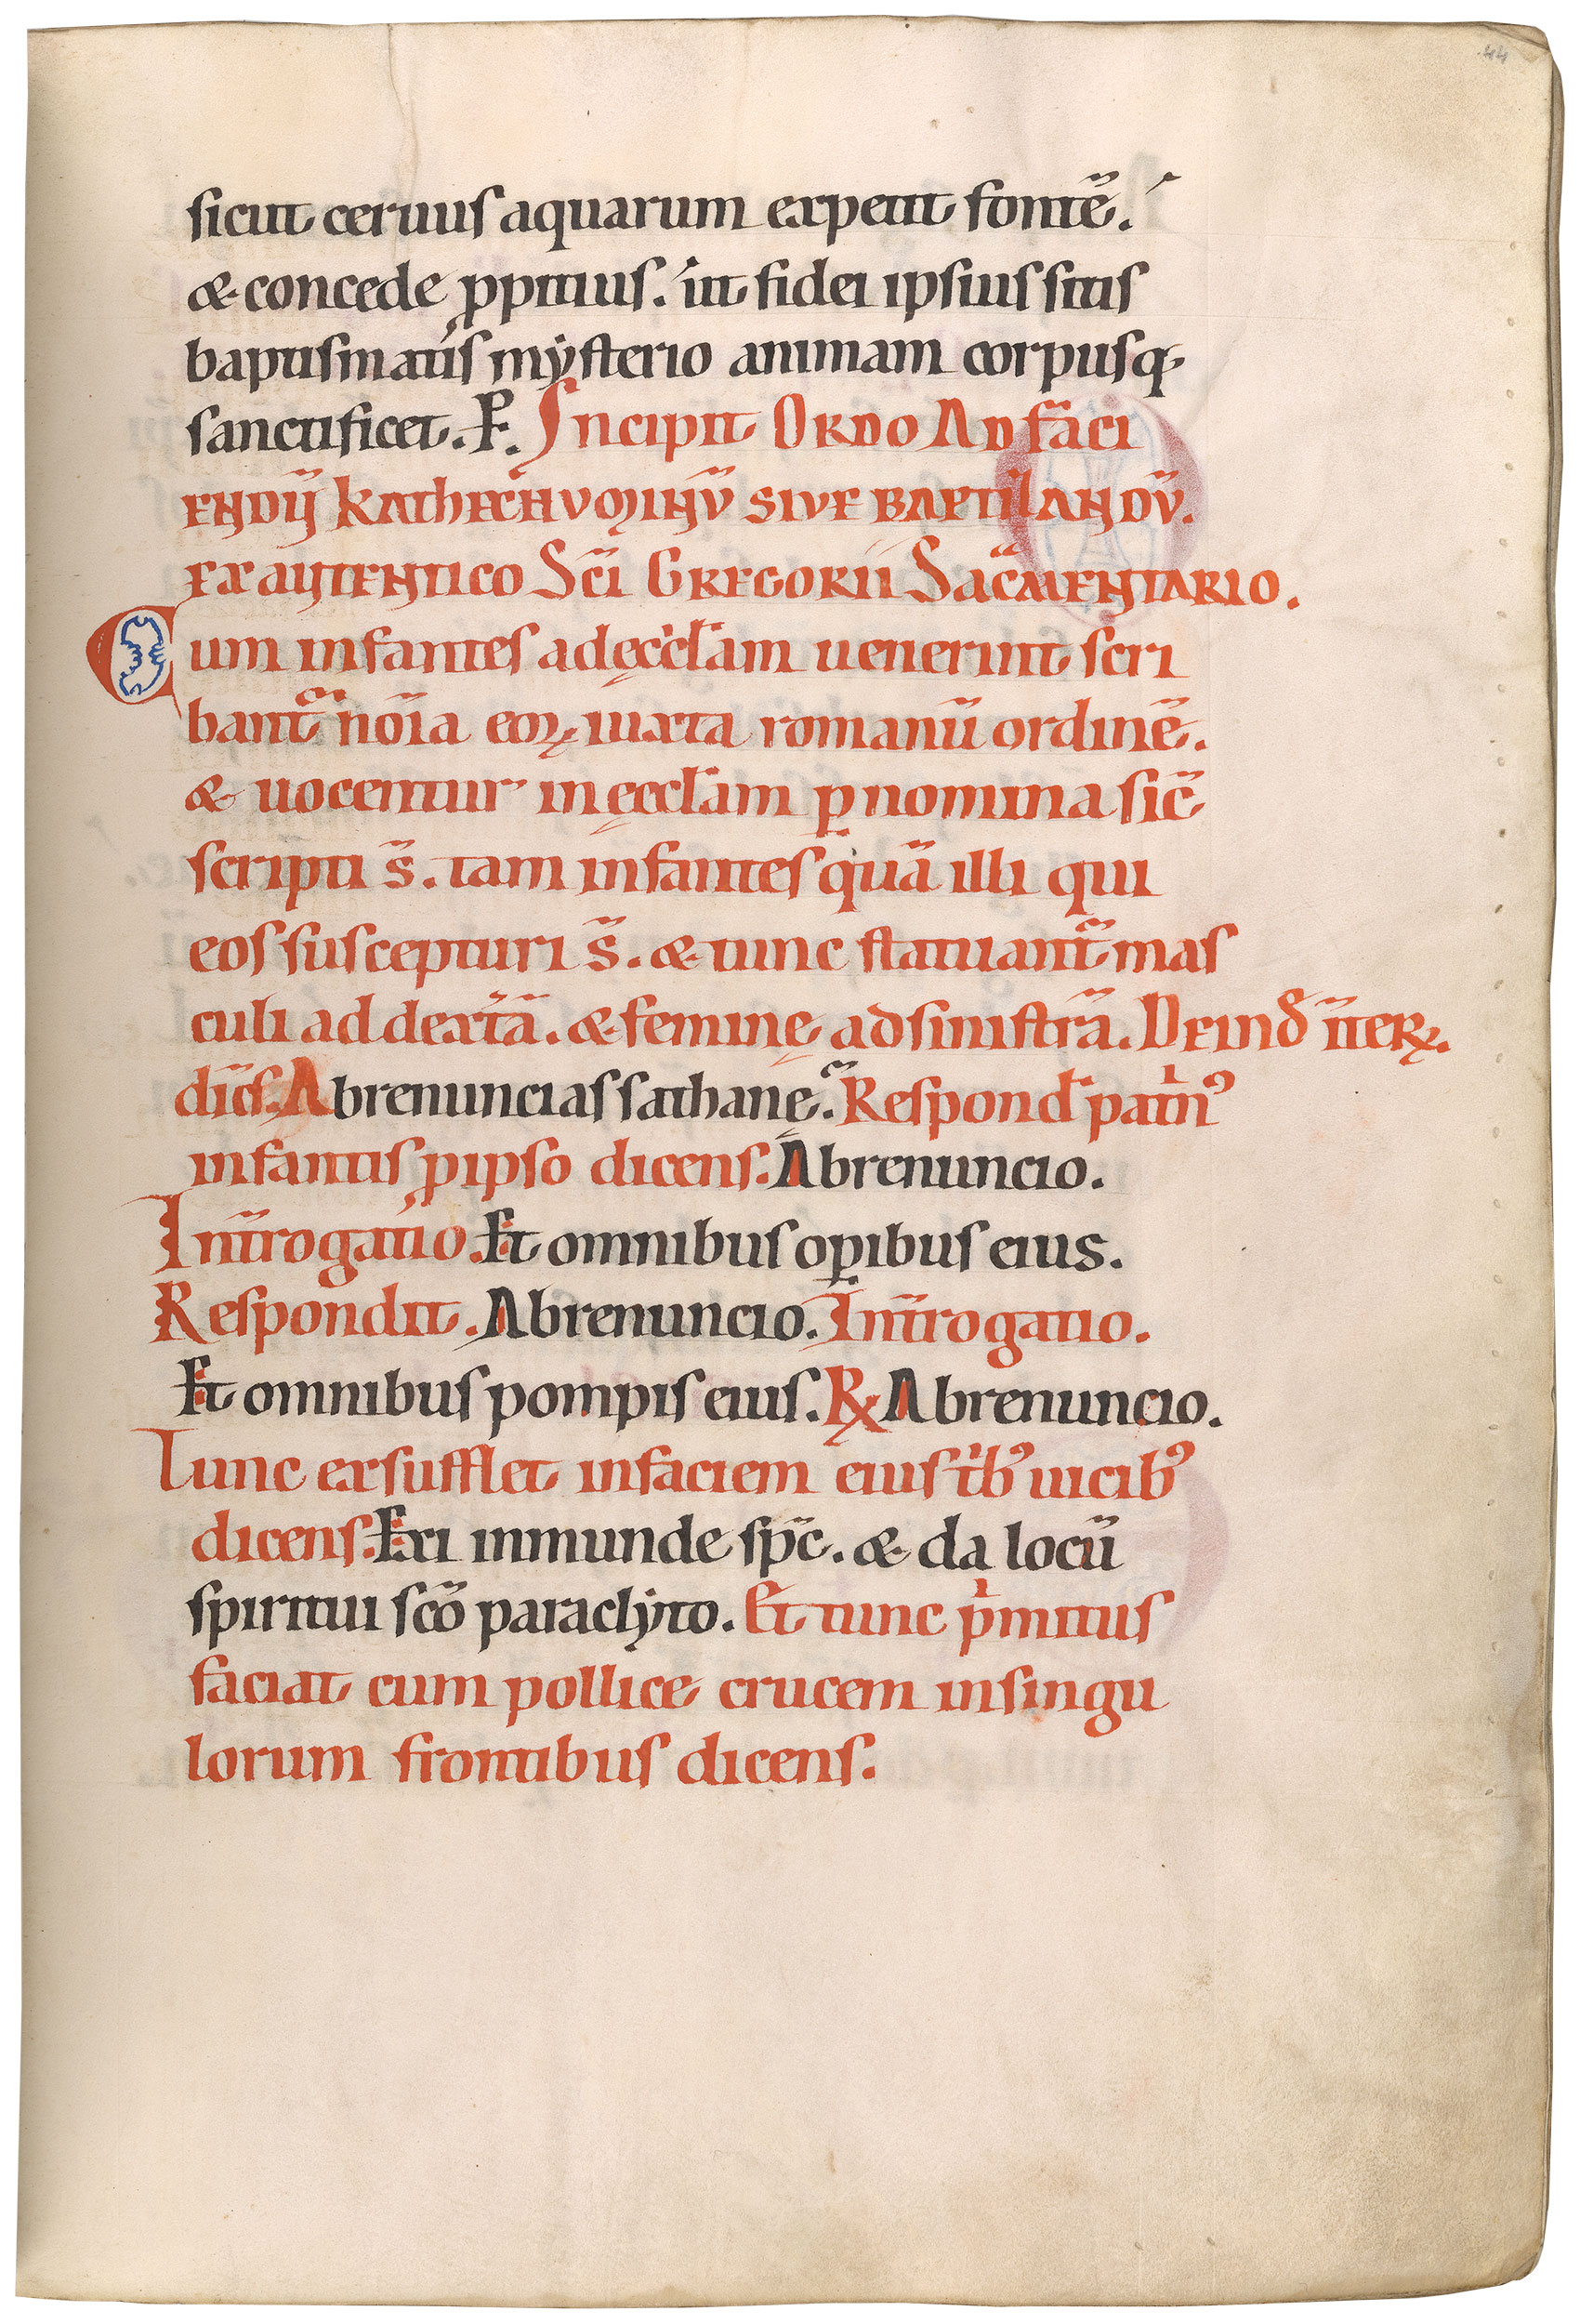 44
sicut ceruus aquarum expetit fontē.
& concede ꝓpitius. ut fidei ipsius sitis
baptismatis mẏsterio animam corpusq;
sanctificet. P. Incipit Ordo Ad faci
endū kathecnuminū sive baptizandū.
ex autentico Sc̄i Gregorii Sac̄mentario.
Cum infantes ad ęccl̄am uenerint scri
bant᷑ nōīa eoꝝ iuxta romanū ordinē.
& uocentur in ęccl̄am ꝑ nomina sic̄
scripti s̄. tam infantes quā illi qui
eos suscepturi s̄. & tunc statuant᷑ mas
culi ad dext̄ā. & feminę ad sinistrā. Deinđ īterꝝ.
dic̄s. Abrenuncias sathanę. Respond̄ patͥnꝰ
infantis ꝓ ipso dicens. Abrenuncio.
Int̄rogatio. Et omnibus oꝑibus eius.
Respondit. Abrenuncio. Int̄rogatio.
Et omnibus pompis eius. ℞ Abrenuncio.
Tunc exsufflet in faciem eius tͥbꝰ uicibꝰ
dicens. Exi inmunde sp̄c. & da locū
spiritui sc̄o paraclẏto. Et tunc pͥmitus
faciat cum pollice crucem in singu
lorum frontibus dicens.